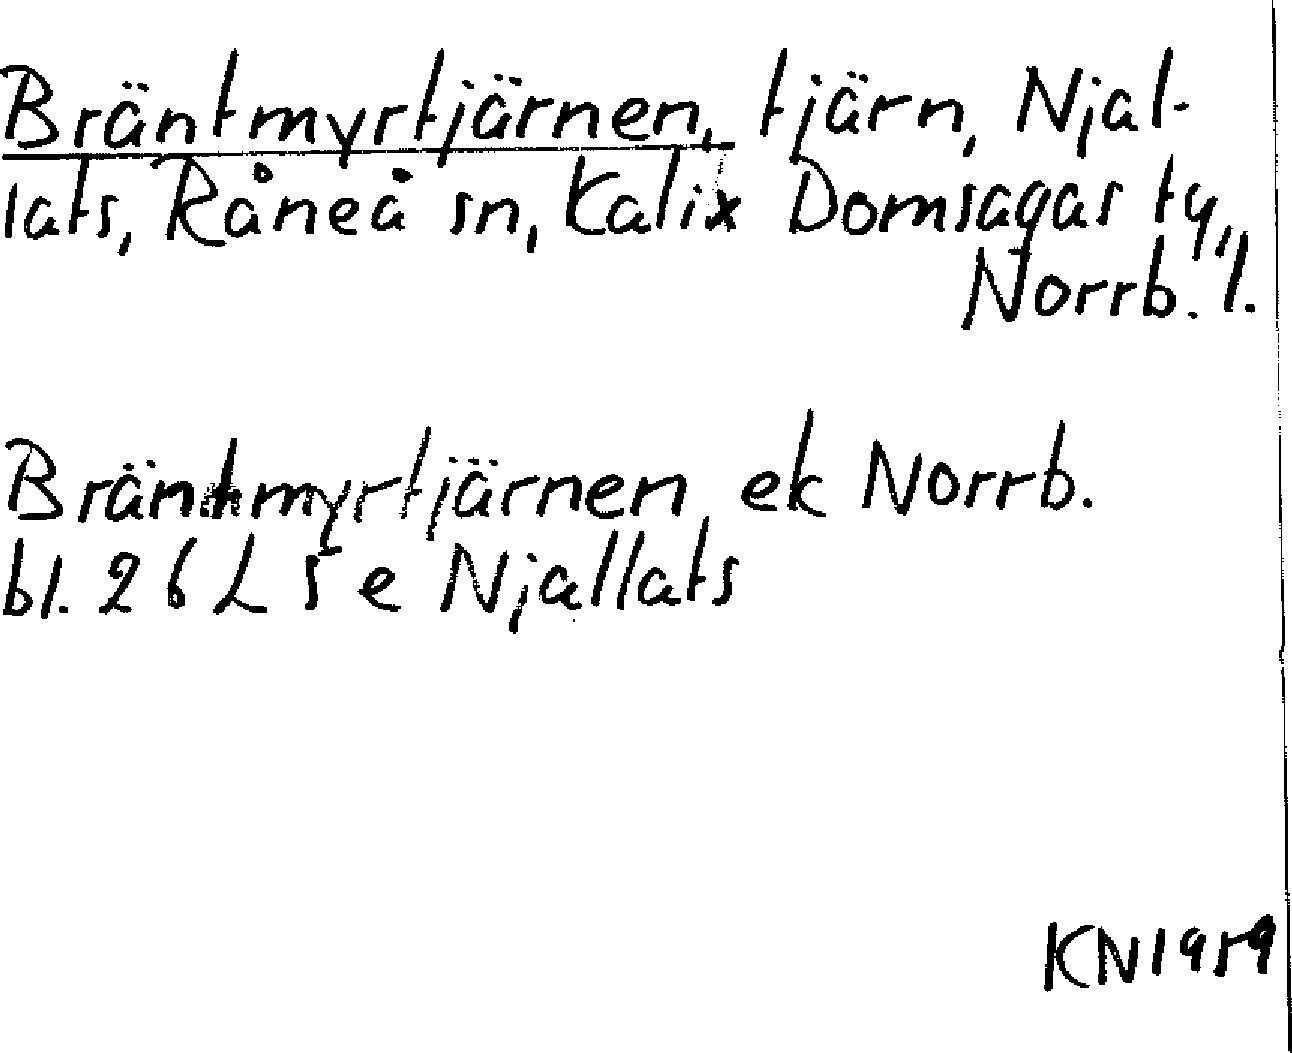 Bräntmyrtjärnen, tjärn, Njal-
lats, Råneå sn, Kalix Domsagas tg,
Norrb. l.
Bräntmyrtjärnen ek Norrb.
bl. 26 L 5 e Njallats
KN 1959